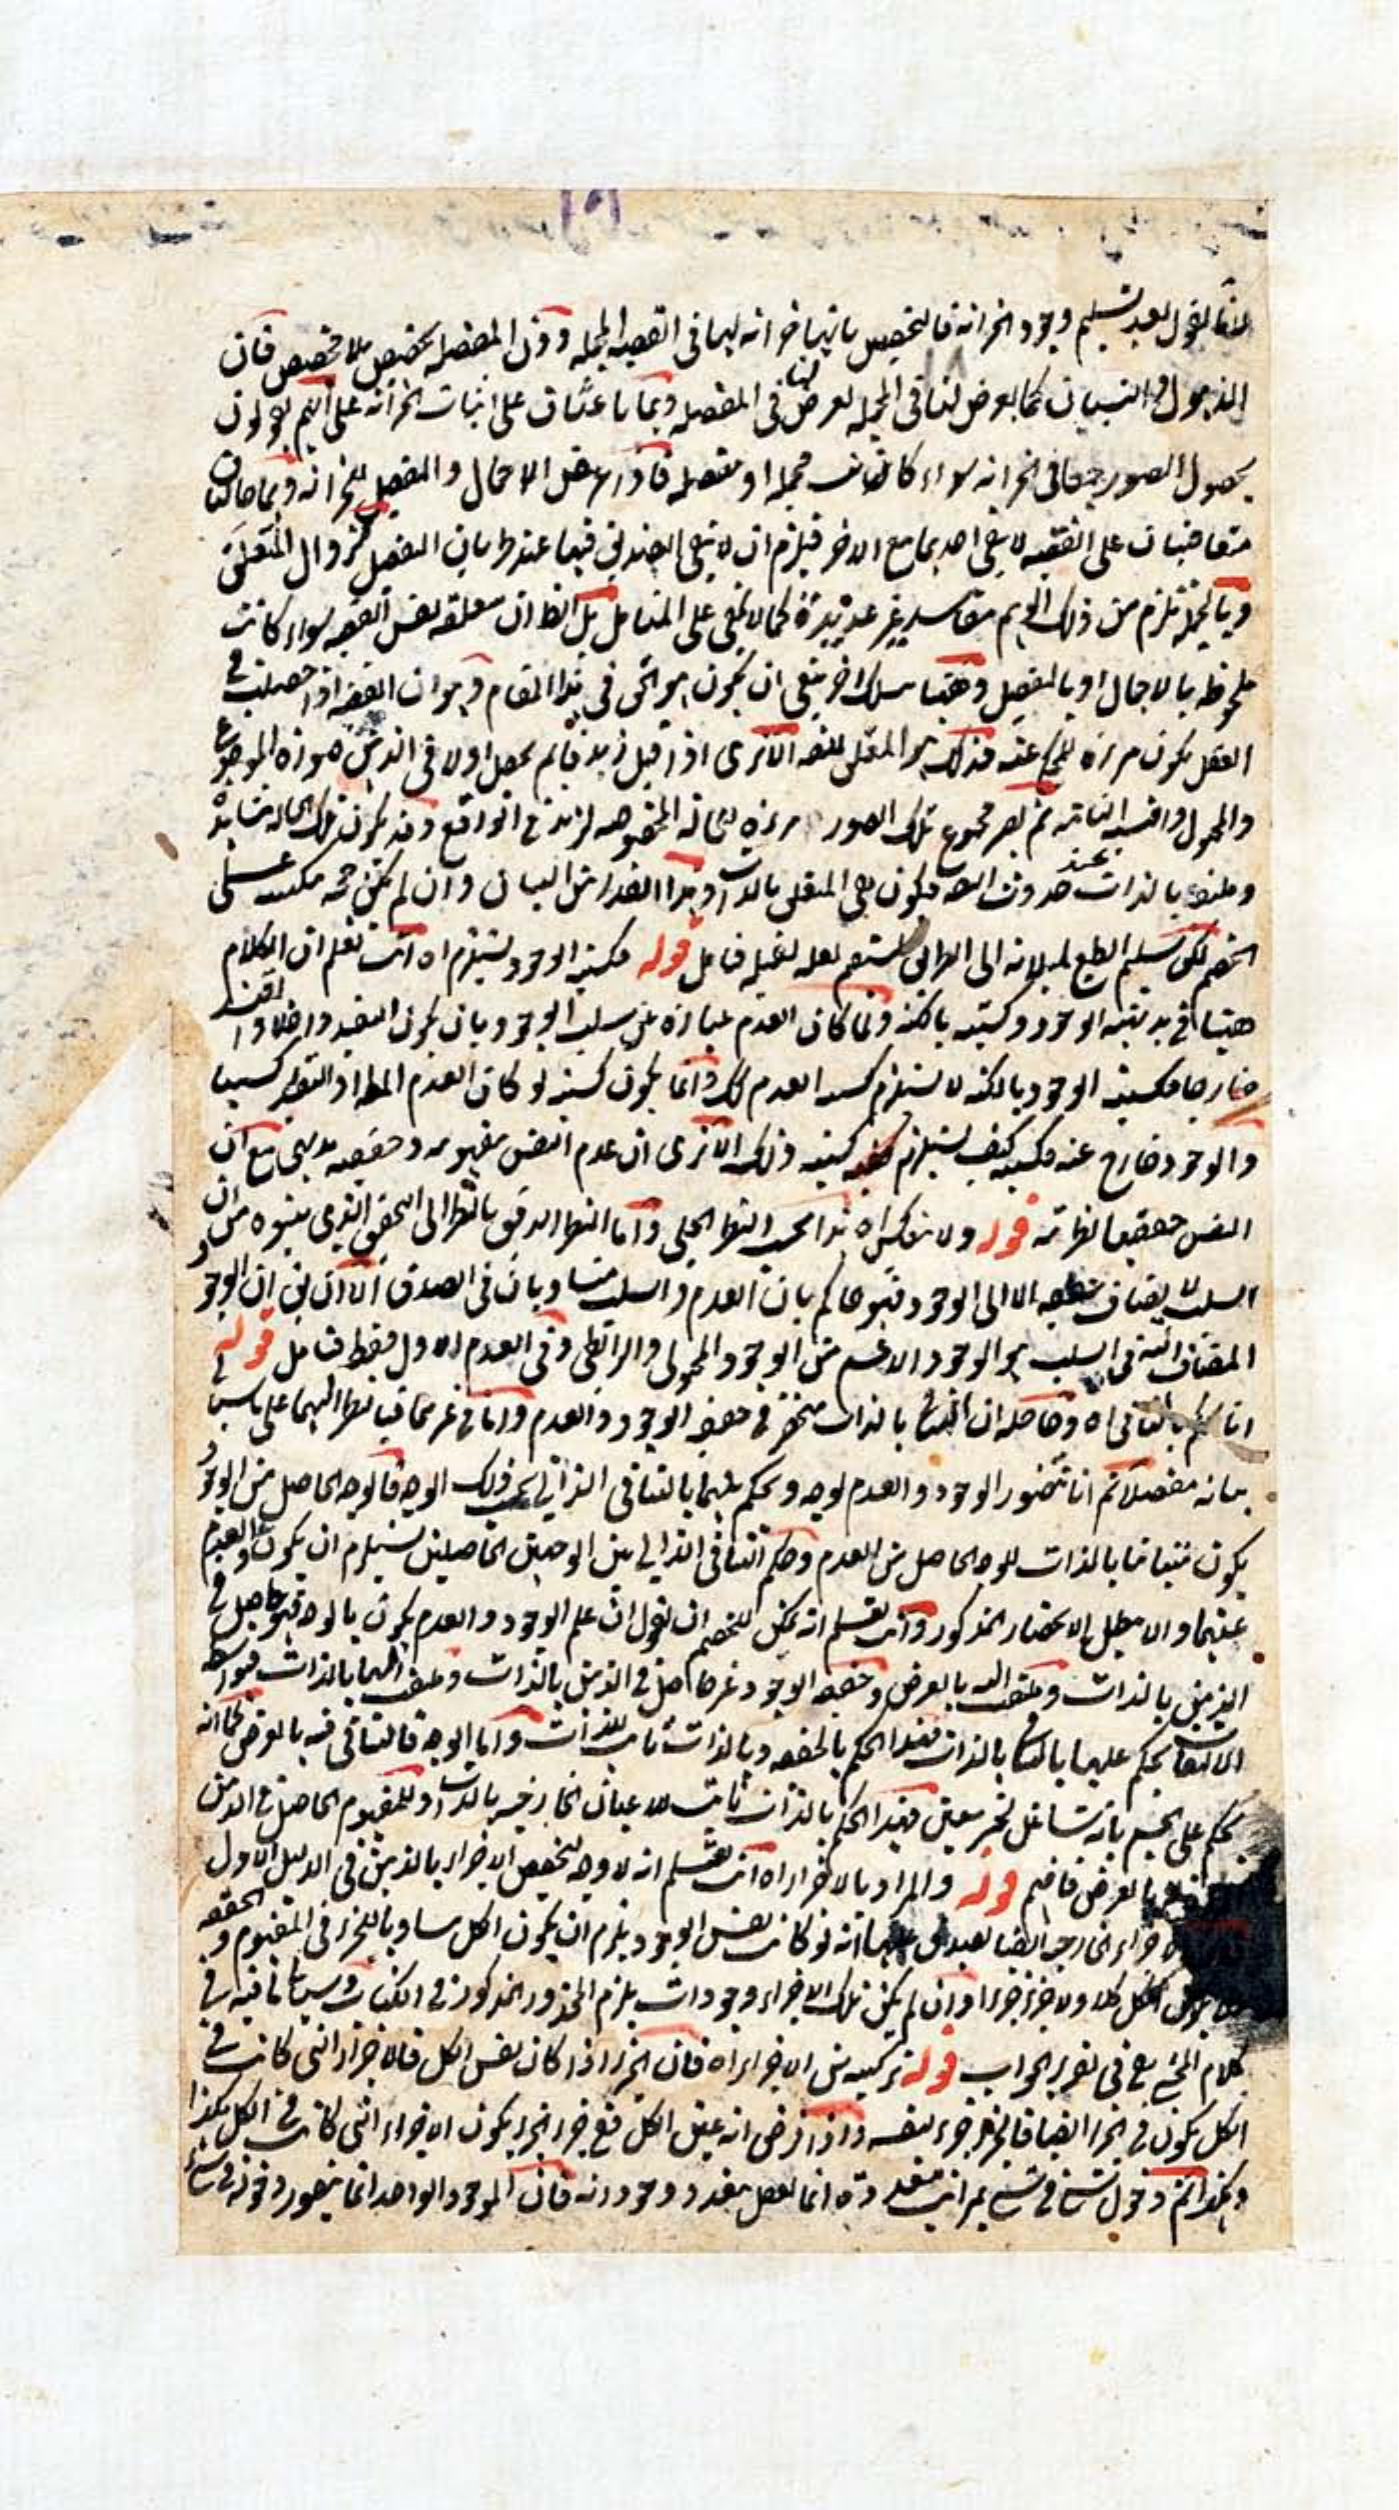 لقول بعد تسليم وجود الخزانة فالتخصيص بانها خزانة لها فى القضية المجملة دون المفصلة تخصيص بلا مخصص فان
الذهول والنسيان كما يعرض لنا فى المجملة يعرض لنا فى المفصلة وهما باعثان على اثبات الخزانة على انهم يقولون
بحصول الصور جميعا فى الخزانة سواء كانت مجملة او مفصلة فاذا عرض الاجمال والتفصيل للخزانة وهما حالتان
متعاقبتان على القضية لا يبقى احدهما مع الاخر فيلزم ان لا يبقى التصديق فيها عند طريان التفصيل لزوال المتعلق
وبالجملة تلزم من ذلك الوهم مفاسد غير عديدة كما لا يخفى على المتامل بل الظ ان متعلقه نفس القضية سواء كانت
ملحوظة بالاجمال او بالتفصيل وههنا مسلك اخر ينبغى ان يكون هو الحق فى هذا المقام وهو ان القضية اذا حصلت فى
العقل يكون مرءاة للمحكى عنه فذلك هو المتعلق للتصديق الا ترى اذا قيل زيد قائم يحصل اولا فى الذهن صورة الموضوع
والمحمول والنسبة التامة ثم يصير مجموع تلك الصور مرءاة لحالة المخصوصة لزيد فى الواقع وقد يكون تلك الحالة مشاهدة
وملتفتة بالذات عند حدوث التصديق فيكون هى المتعلق بالذات وهذا القدر من البيان وان لم يكن حجة مسكتة على
الخصم لكن سليم الطبع لهدايته الى الطريق المستقيم لعله يقبله فتامل قوله فكسبية الوجود يستلزم اه انت تعلم ان الكلام
ههنا فى بديهية الوجود وكسبيته بالكنه ولما كان العدم عبارة عن سلب الوجود بان يكون التقييد داخلا والقيد
خارجا فكسبية الوجود بالكنه لا يستلزم كسبية العدم كك وانما يكون كسبية لو كان العدم المط او التقييد كسبيا
والوجود خارج عنه فكسبيته كيف يستلزم كسبية ذلك الا ترى ان عدم النفس مفهومه وحقيقته بديهى مع ان
النفس حقيقتها نظرية قوله ولا ينعكس اه هذا بحسب النظر الجلى واما النظر الدقيق بالنظر الى التحقيق الذى بينوه من ان
السلب لا يضاف حقيقة الا الى الوجود فهو حاكم بان العدم والسلب متساويان فى الصدق الا ان بين ان الوجود
المضاف اليه فى السلب هو الوجود الاعم من الوجود المحمولى والرابطى وفى العدم الاول فقط فتامل قوله
انا نحكم بالتنافى اه وحاصله ان التنافى بالذات منحصر فى حقيقة الوجود والعدم واما فى غيرهما فبالنظر اليهما على ما سياتى فى
بيانه مفصلا ثم انا نتصور الوجود والعدم لوجه ونحكم عليهما بالتنافى الذاتى بحسب ذلك الوجه فالوجه الحاصل من الوجود
يكون متنافيا بالذات للوجه الحاصل من العدم وحكم التنافى الذاتى بين الوجهين الحاصلين يستلزم ان يكون الوجود والعدم
عينهما والا بطل الانحصار المذكور وانت تعلم انه يمكن للخصم ان يقول ان علم الوجود والعدم يكون بالوجه فهو حاصل فى
الذهن بالذات وملتفت اليه بالعرض وحقيقة الوجود غير حاصل فى الذهن بالذات وملتفت اليها بالذات فبواسطة
الالتفات يحكم عليها بالتنافى بالذات فهذا الحكم بالحقيقة وبالذات ثابت للذات واما الوجه فالتنافى فيه بالعرض كما انه
يحكم على الجسم بانه شاغل لحيز معين فهذا الحكم بالذات ثابت للاعيان الخارجية بالذات وللمفهوم الحاصل فى الذهن
بالعرض فافهم قوله والمراد بالاجزاء اه انت تعلم انه لا وجه لتخصيص الاجزاء بالذهن فى الدليل الاول
الاجزاء الخارجية ايضا انه لو كانت نفس الوجود يلزم ان يكون الكل مساويا للجزء فى المفهوم والحقيقة
الكل كلا ولا جزء جزءا وان لم يكن تلك الاجزاء وجودات يلزم المحذور المذكور فى الكتاب وسياتى ما فيه فى
كلام المحشى مع فى تقرير الجواب قوله تركيبه من الاجزاء اه فان الجزء اذا كان نفس الكل فالاجزاء التى كانت فى
الكل يكون فى الجزء ايضا فالجزء جزء لنفسه واذا فرض انه عين الكل فمع جزء الجزء يكون الاجزاء التى كانت فى الكل هكذا
وهكذا ثم دخول شئ فى شئ بمراتب متعددة انما يعقل بتعدد وجوداته فان الموجود الواحد انما يتصور دخوله فى شئ